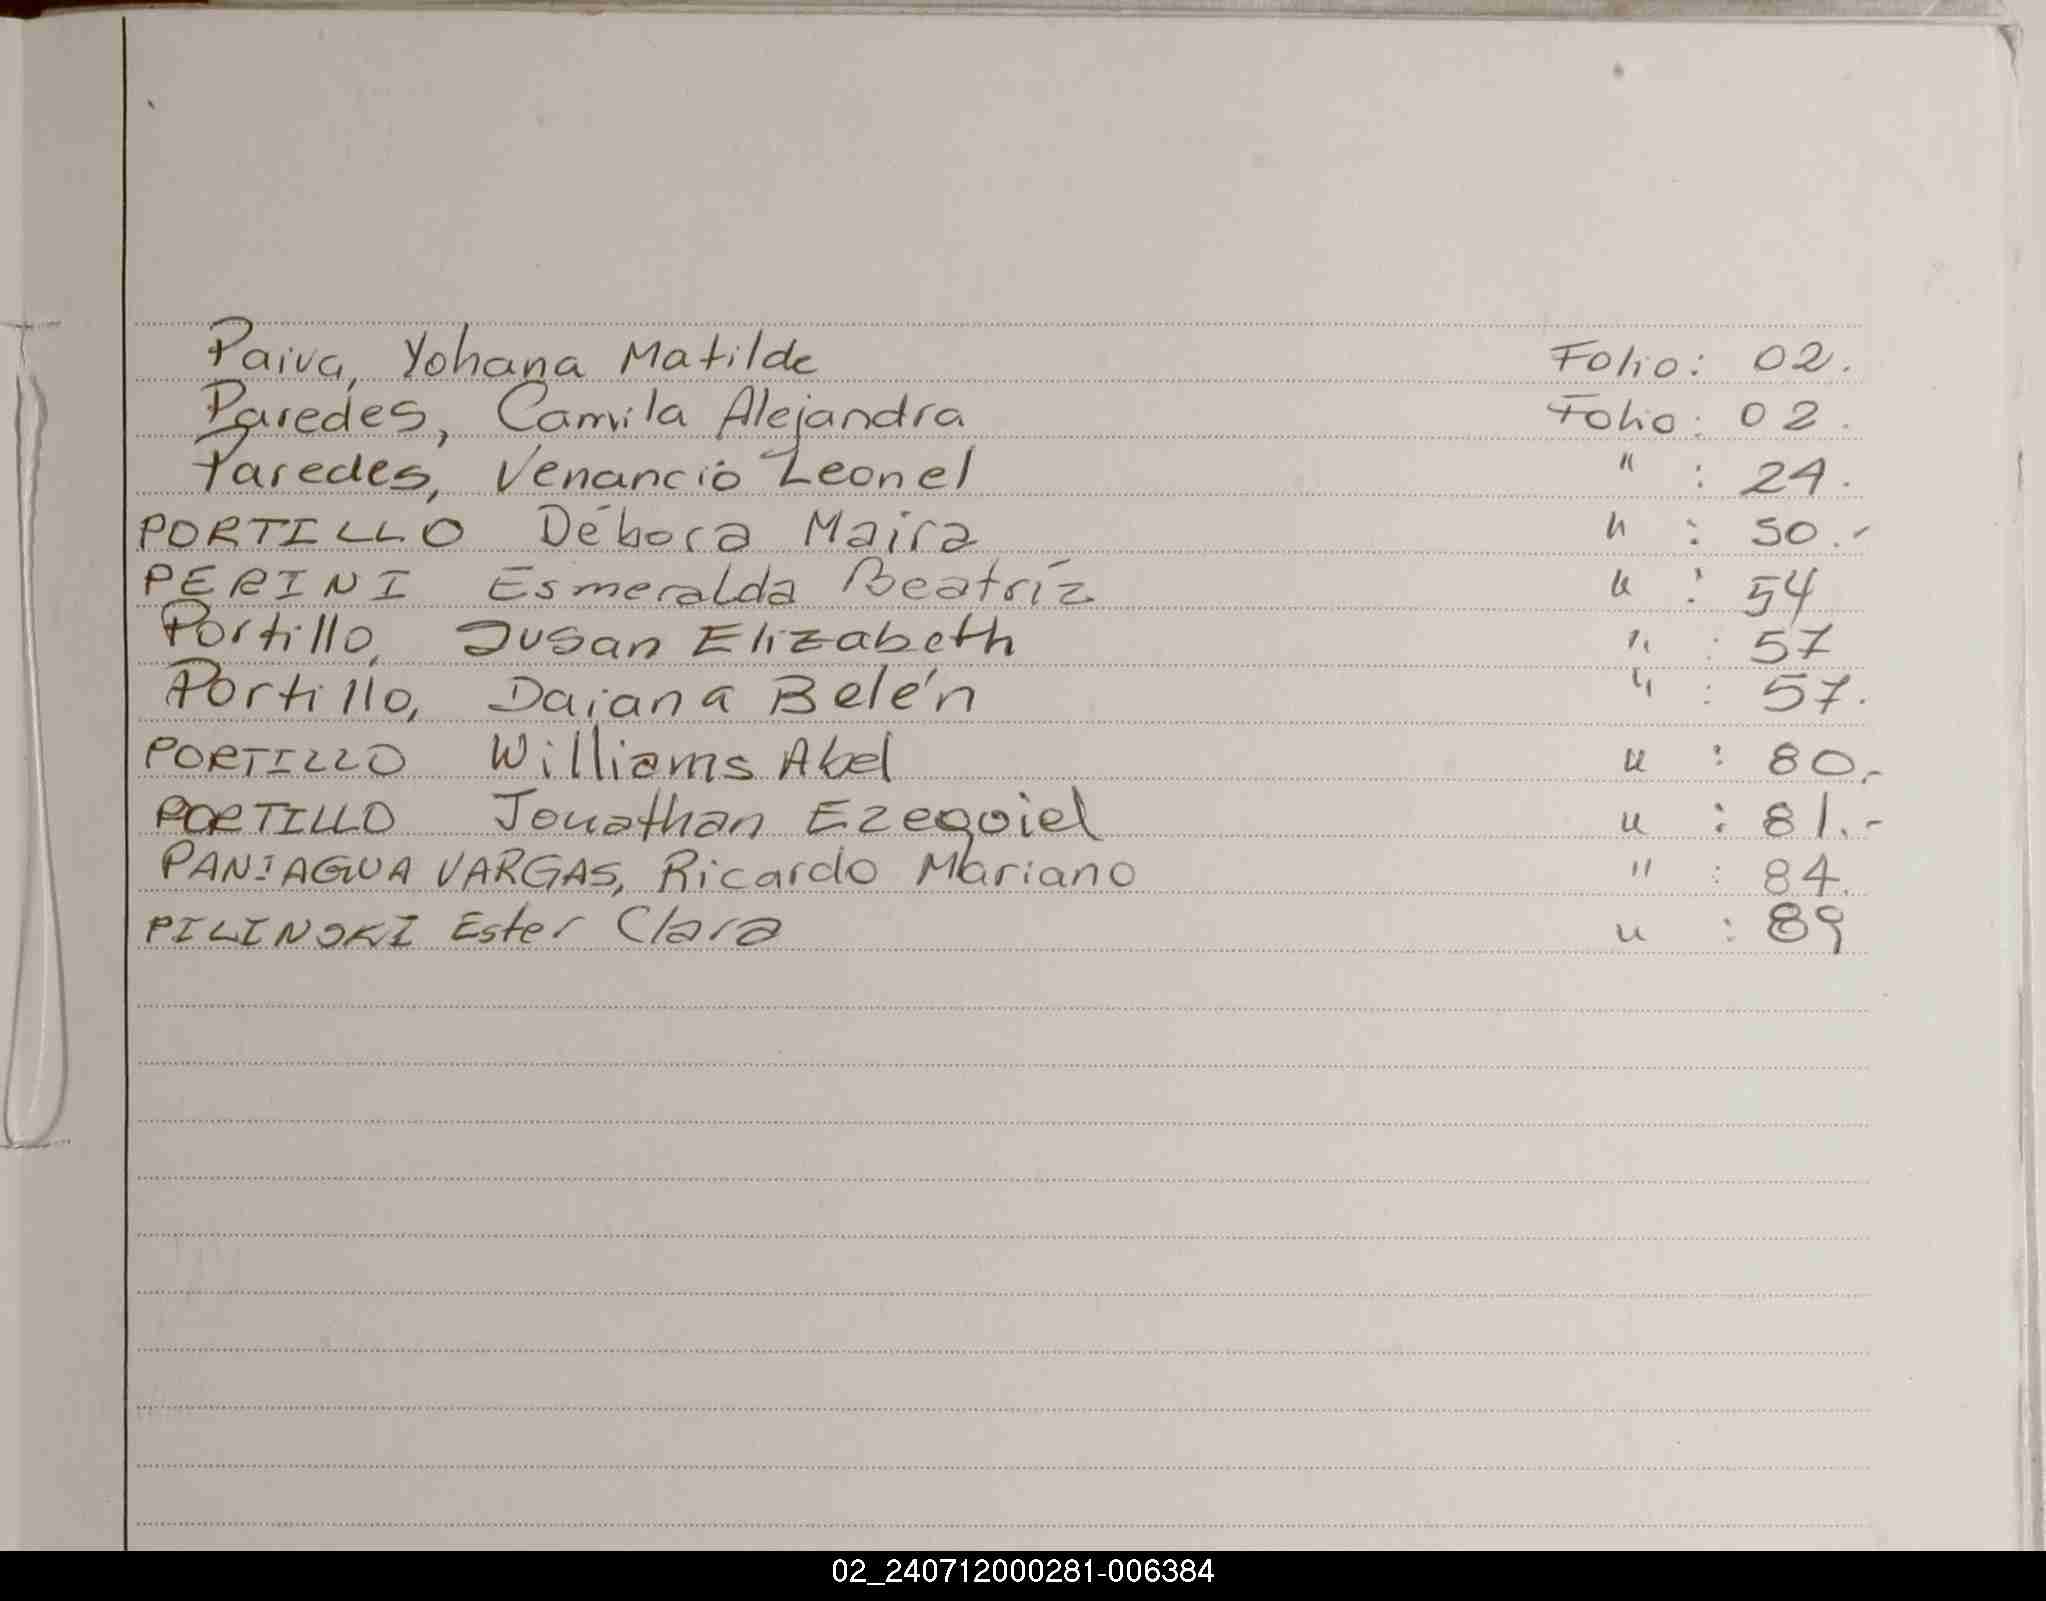 Paiva, Yohana Matilde Folio: 02.
Paredes, Camila Alejandra Folio: 02.
Paredes, Venancio Leonel " : 24.
PORTILLO Débora Maira " : 50.-
PERINI Esmeralda Beatríz " : 54
Portillo, Susan Elizabeth " : 57
Portillo, Daiana Belén " : 57.
PORTILLO Williams Abel " : 80.-
PORTILLO Jonathan Ezequiel " : 81.-
PANIAGUA VARGAS, Ricardo Mariano " : 84.
PILINSKI Ester Clara " : 89
02_240712000281-006384